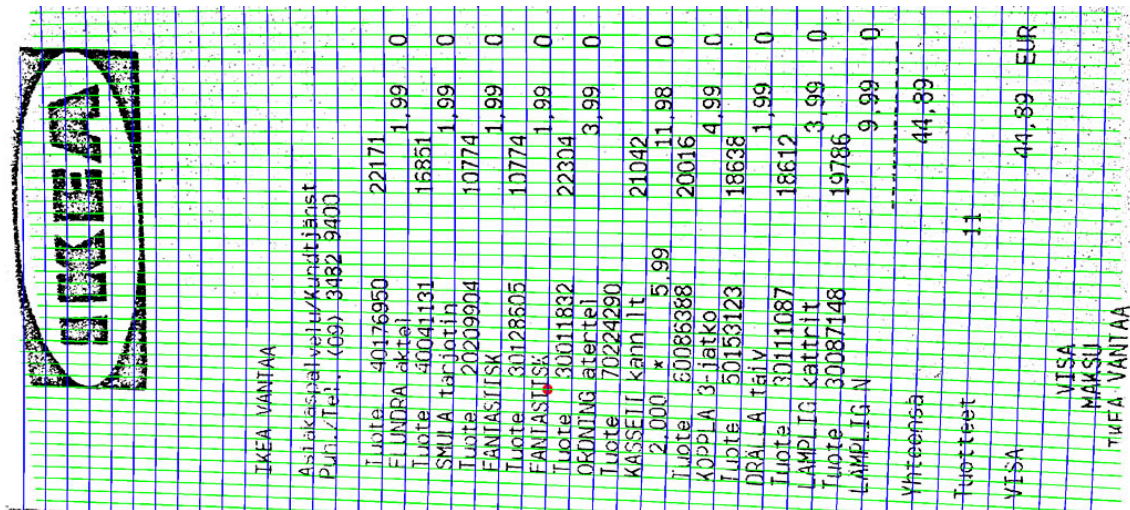 IKEA
IKEA VANTAA
Asiakaspalvelu/Kundtjänst
Puh./Tel. (09) 3482 9400
Tuote 40176950 22171
FLUNDRA aktel 1,99 0
Tuote 40041131 16851
SMULA tarjotin 1,99 0
Tuote 20209904 10774
FANTASTISK 1,99 0
Tuote 30128605 10774
FANTASTISK 1,99 0
Tuote 30011832 22304
ORDNING atertel 3,99 0
Tuote 70224290 21042
KASSETT kann lt 11,98 0
2.000 * 5.99
Tuote 60086388 20016
KOPPLA 3-jatko 4,99 0
Tuote 50153123 18638
DRÄLLA taiv 1,99 0
Tuote 30111087 18612
LÄMPLIG kattrit 3,99 0
Tuote 30087148 19786
LÄMPLIG N 9,99 0
Yhteensä 44,89
Tuotteet 11
VISA 44,89 EUR
VISA
MAKSU
IKEA VANTAA